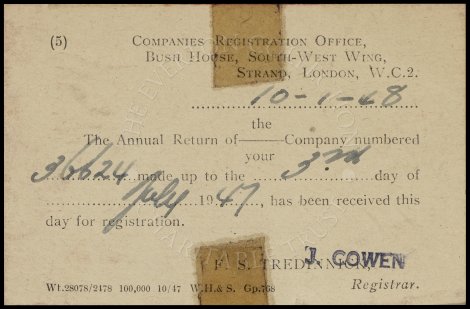 (5) COMPANIES REGISTRATION OFFICE,
BUSH HOUSE, SOUTH-WEST WING,
STRAND, LONDON, W.C.2.
10-1-48
the
The Annual Return of——Company numbered
your
36624 made up to the 3rd day of
July 1947, has been received this
day for registration.
F. S. TREDINNICK, J. COWEN
Wt.28078/2178 100,000 10/47 W.H.& S. Gp.768 Registrar.